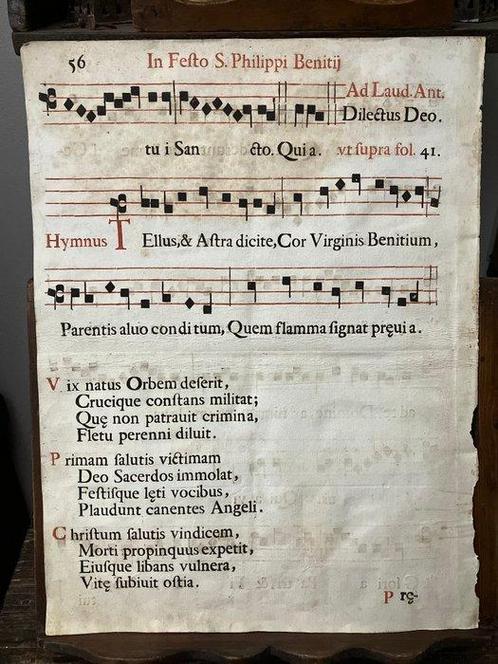 56 In Feſto S. Philippi Benitij
Ad Laud. Ant.
Dilectus Deo.
tu i San cto. Qui a. vt ſupra fol. 41.
Hymnus T Ellus, & Aſtra dicite, Cor Virginis Benitium,
Parentis aluo con di tum, Quem flamma ſignat pręui a.
V ix natus Orbem deſerit,
Crucique conſtans militat;
Quę non patrauit crimina,
Fletu perenni diluit.
P rimam ſalutis victimam
Deo Sacerdos immolat,
Feſtiſque lęti vocibus,
Plaudunt canentes Angeli.
C hriſtum ſalutis vindicem,
Morti propinquus expetit,
Eiuſque libans vulnera,
Vitę ſubiuit oſtia.
P rę-